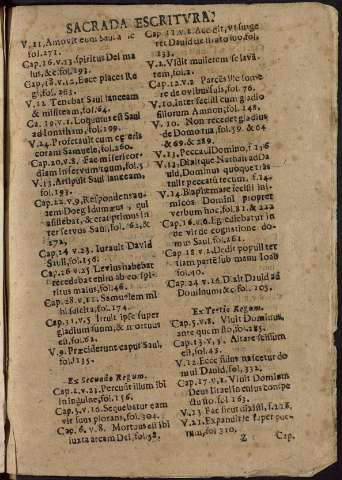 SACRADA ESCRITVRA.
V. 11. Amovit eum Saul a se
fol. 271.
Cap. 16. v. 23. Spiritus Dei ma
lus, &c. fol. 293.
Cap. 18. v. 12. Ecce places Re
gi, fol. 263.
V. 12 Tenebat Saul lanceam
& misit eam, fol. 64.
Ca. 19. v. 1. Loquutus est Saul
ad Ionatham, fol. 199.
V. 24. Prophetauit cum ceteris
coram Samuele, fol. 260.
Cap. 20. v. 8. Fac misericor-
diam in servum tuum, fol. 5
V. 13. Arripuit Saul lanceam,
fol. 191.
Cap. 22. v. 9. Respondens au-
tem Doeg Idumæus, qui
asistebat, & erat primus in
ter servos Saul, fol. 62, &
272.
Cap. 24 v. 23. Iurauit David
Sauli, fol. 156.
Cap. 26 v. 25 Levius habebat
recedebat enim ab eo spi-
ritus malus, fol. 46.
Cap. 28. v. 11. Samuelem mi
hi suscita, fol. 174.
Cap. 31. v. 5 Irruit ipse super
gladium suum, & mortuus
est, fol. 62.
V. 9. Præciderunt caput Saul,
fol. 235.
Ex Secundo Regum.
Cap. 2. v. 23. Percussit illum ibi
in inguine, fol. 156.
Cap. 3. v. 16. Sequebatur eam
vir suus plorans, fol. 304.
Cap. 6. v. 8. Mortuus est ibi
iuxta arcam Dei, fol. 38.
Cap. 11. v. 2. Accidit, vt surge
ret David de strato suo, fol.
233.
V. 2. Vidit mulierem se lavā
tem, fol. 2.
Cap. 12. v. 2 Parcens ille sume
re de ovibus suis, fol. 76.
V. 10. interfecisti eum gladio
filiorum Ammon, fol. 148.
V. 10. Non recedet gladius
de Domo tua, fol. 59. & 64
& 69. & 289.
V. 13. Peccaui Domino, f. 236
V. 13. Dixitque Nathan ad Da
uid, Dominus quoque trās
tulit peccatū tuum. f. 14.
V. 14. Blasphemare fecisti ini-
micos Domini propter
verbum hoc, fol. 81. & 222
Cap. 16. v. 6. Egrediebatur in
de vir de cognatione do-
mus Saul, fol. 261.
Cap. 18 v. 2. Dedit populi ter
tiam partem sub manu Ioab
fol. 40.
Cap. 24 v. 16. Dixit David ad
Dominum, &c. fol. 105.
Ex Tertio Regum.
Cap. 5. v. 8. Vivit Dominus,
ante quem sto, fol. 185.
Cap. 13. v. 3. Altare scissum
est, fol. 43.
V. 12. Ecce filius nascetur do
mui David, fol. 332.
Cap. 17. v. 1. Vivit Dominus
Deus Israel in cuius conspe
ctu sto. fol. 163.
V. 13 Fac sicut dixisti, f. 228.
V. 21. Expandit se super pue-
rum, fol. 310.
Z Cap.